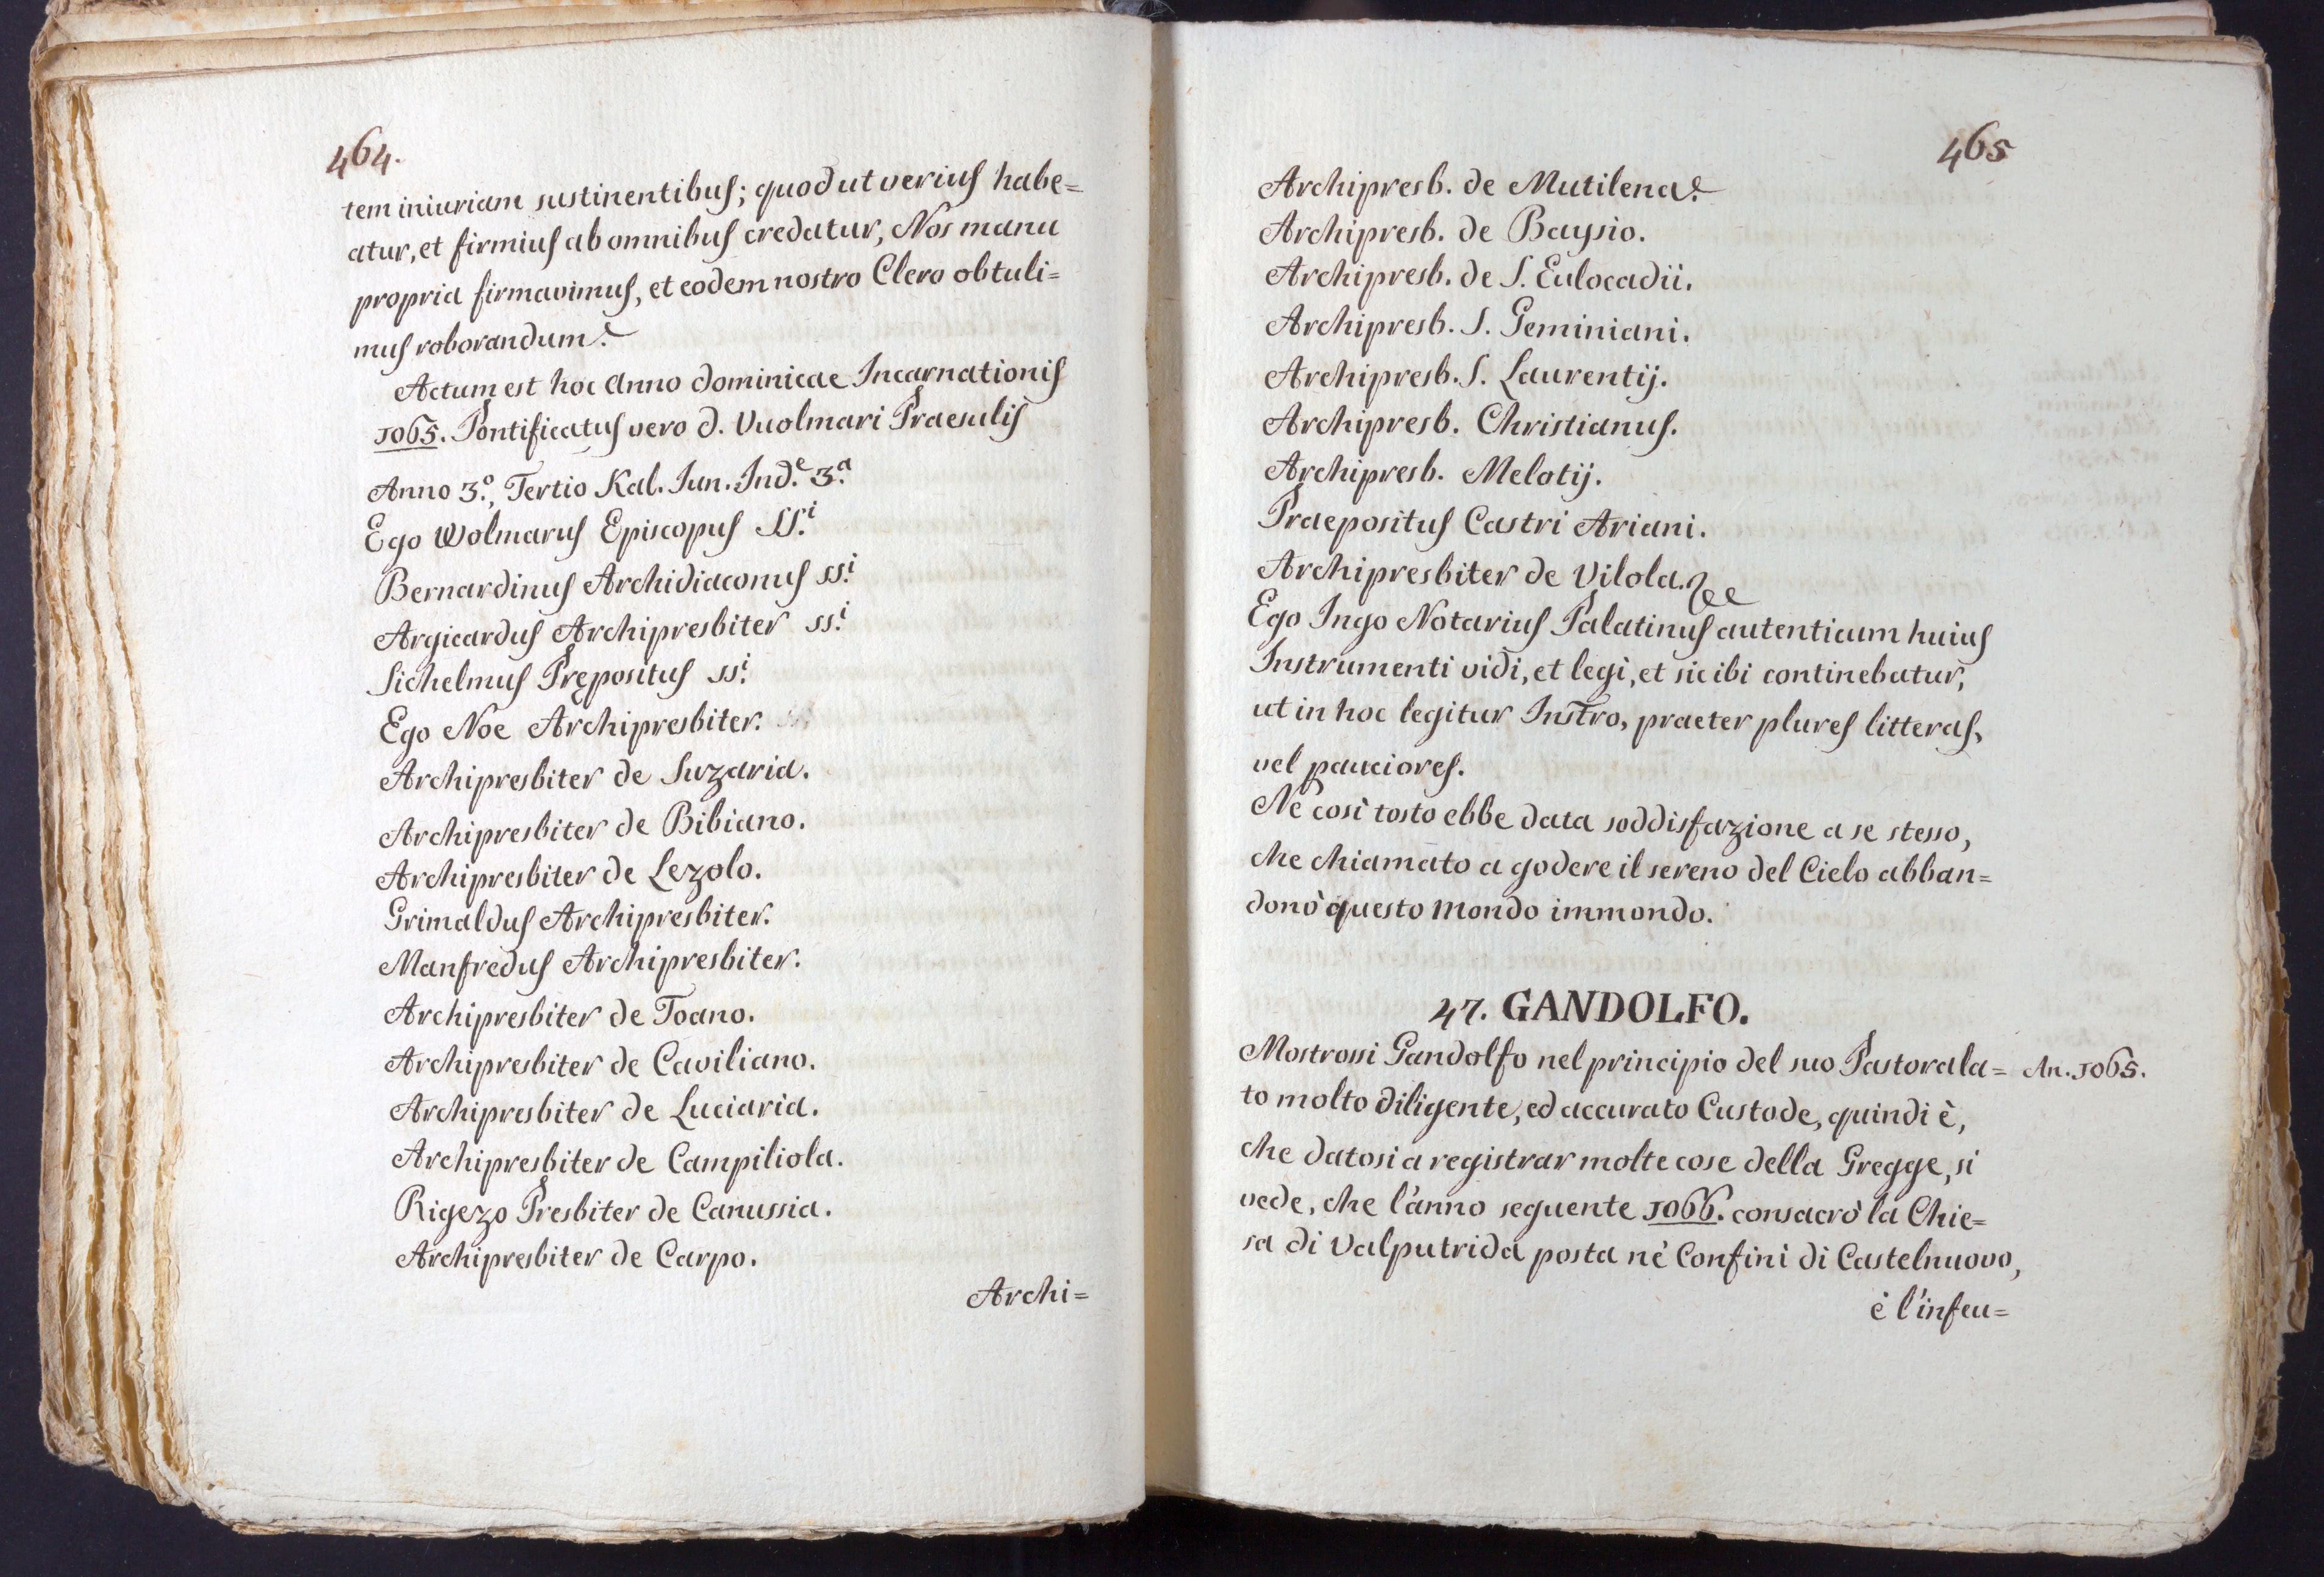 464.
tem iniuriam sustinentibus; quod ut verius habe=
atur, et firmius ab omnibus credatur, Nos manu
propria firmavimus, et eodem nostro Clero obtuli=
mus roborandum.
Actum est hoc Anno dominicae Incarnationis
1065. Pontificatus vero d. Vuolmari Praesulis
Anno 3.º, Tertio Kal. Iun. Ind.e 3.a
Ego Wolmarus Episcopus SS.i
Bernardinus Archidiaconus ss.i
Argicardus Archipresbiter ss.i
Sichelmus Prępositus ss.i
Ego Noe Archipresbiter.
Archipresbiter de Suzaria.
Archipresbiter de Bibiano.
Archipresbiter de Lezolo.
Grimaldus Archipresbiter.
Manfredus Archipresbiter.
Archipresbiter de Toano.
Archipresbiter de Caviliano.
Archipresbiter de Luciaria.
Archipresbiter de Campiliola.
Rigezo Presbiter de Canussia.
Archipresbiter de Carpo.
Archi=
465
Archipresb. de Mutilena.
Archipresb. de Baysio.
Archipresb. de S. Eulocadii.
Archipresb. S. Geminiani.
Archipresb. S. Laurentij.
Archipresb. Christianus.
Archipresb. Melotij.
Praepositus Castri Ariani.
Archipresbiter de Vilola.
Ego Ingo Notarius Palatinus autenticum huius
Instrumenti vidi, et legi, et sic ibi continebatur,
ut in hoc legitur Instro, praeter plures litteras,
vel pauciores.
Nè così tosto ebbe data soddisfazione a se stesso,
che chiamato a godere il sereno del Cielo abban=
donò questo Mondo immondo.
47. GANDOLFO.
Mostrossi Gandolfo nel principio del suo Pastorala= An. 1065.
to molto diligente, ed accurato Custode, quindi è,
che datosi a registrar molte cose della Gregge, si
vede, che l'anno seguente 1066. consacrò la Chie=
sa di Valputrida posta nè Confini di Castelnuovo,
è l'infeu=